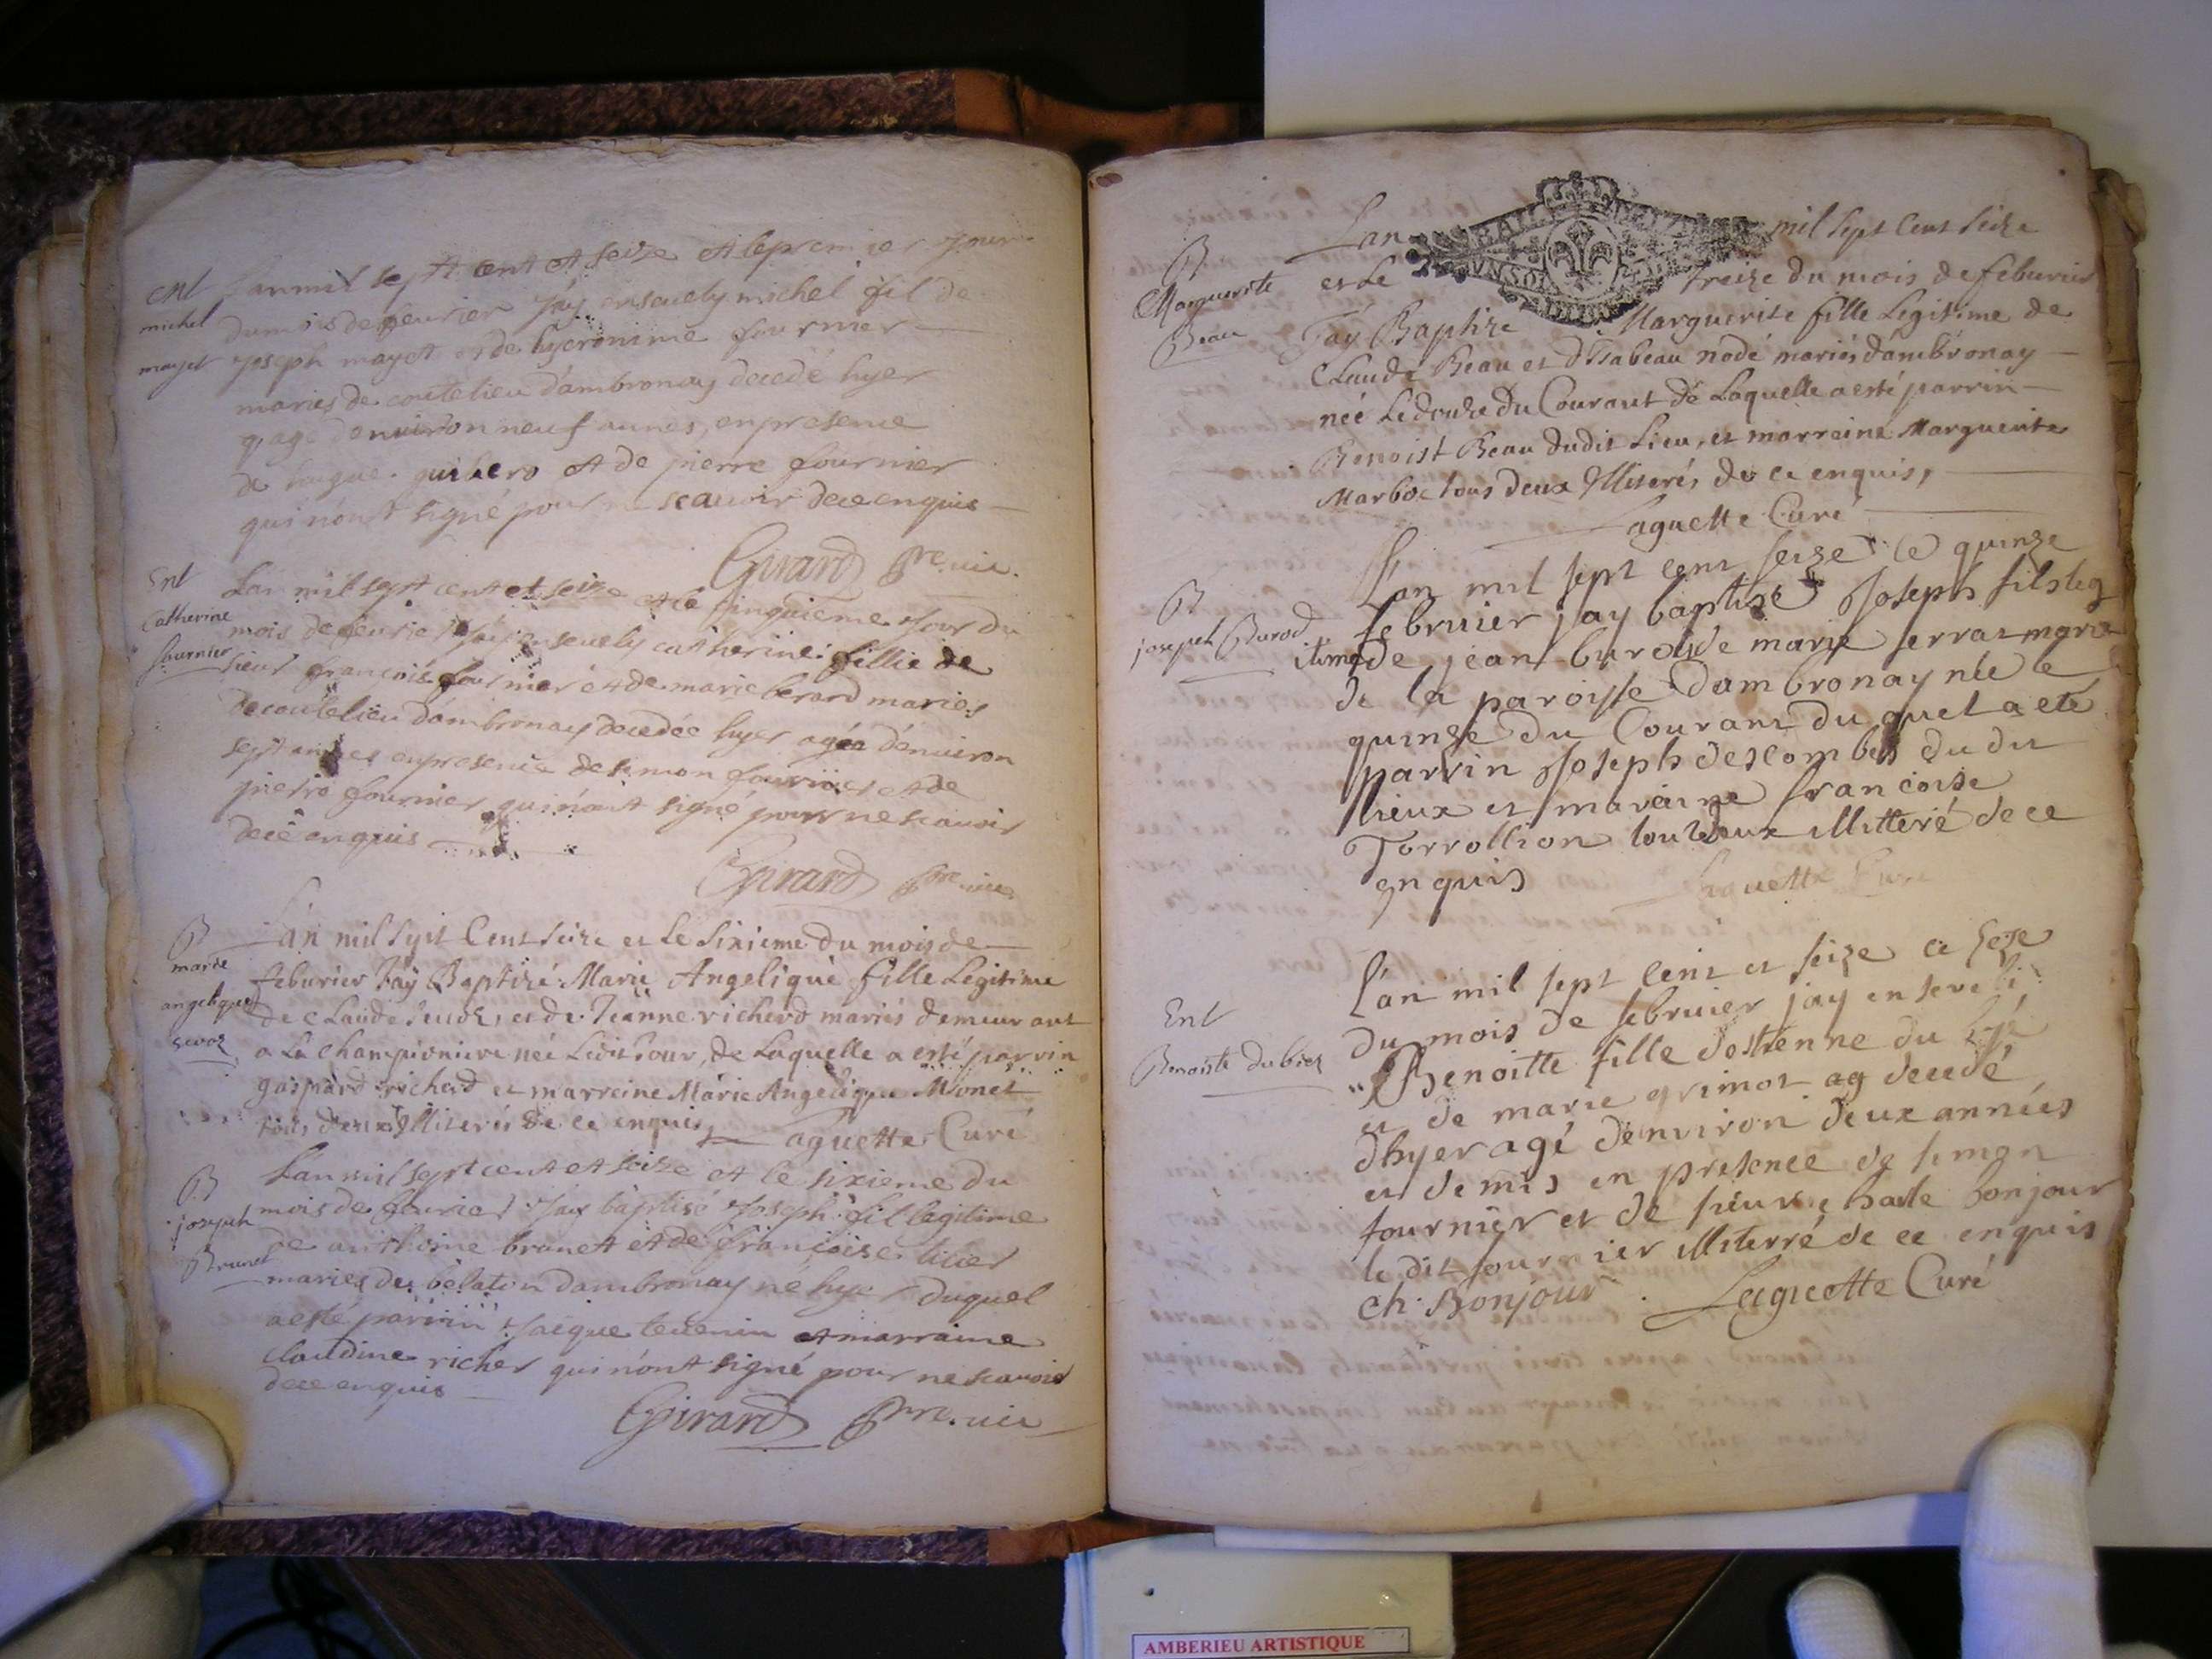 ent
michel
mayet
Lan mil sept cent et seize et le premier jour
du mois de feurier Jay enseuely michel fil de
joseph mayet et de hyeronime fournier
maries de coutelieu dambronay decedé hyer
agé denuiron neuf années, en presence
de Jaque guibero et de pierre fournier
qui n'ont signé pour ne scauoir de ce enquis
Girard pre. vic.
Ent
Catherine
fournier
Lan mil sept cent et seize et le sinquieme jour du
mois de feurier Jay enseuely catherine fillie de
sieur francois fournier et de marie berard maries
de coutelieu d'ambronay decedée hyer agéa d'enuiron
sept années en presence de simon fournier et de
pierre fournier qui n'ont signé pour ne scauoir
de ce enquis
Girard pre. vic.
B
marie
angelique
seuoz
Lan mil sept Cent seize et Le Sixieme du mois de
feburier Jay Baptizé Marie Angelique fille Legitime
de Claude Seuoz, et de Jeanne richerd mariés demeurant
a La Championiere neé Ledit Jour, de Laquelle a esté parrin
gaspard richerd et marreine Marie Angelique Monet
tous deux Illiterés de ce enquis, Laguette Curé
B
joseph
Brunet
Lan mil sept cent et seize et le sixieme du
mois de feurier Jay baptisé Joseph fil legitime
de anthoine brunet et de françoise
maries de belaton dambronay né hyer duquel
a esté parrin Jaique teuenin et marraine
claudine richer qui n'ont signé pour ne scauoir
de ce enquis
Girard pre. vic
B
Marguerite
Beau
Lan mil Sept Cent Seize
et le treize du mois de feburier
Jay Baptizé Marguerite fille Legitime de
Claude Beau et d'Isabeau nodé mariés dambronay
neé Ledouze du Courant de Laquelle a esté parrin
Benoist Beau dudit Lieu, et marreine Marguerite
Marboz tous deux Illiterés de ce enquis,
Laguette Curé
B
joseph Burod
L'an mil sept cent seize le quinze
februier jay baptisé Joseph fils leg
itime de jean burod de marie serraz marie
de la paroisse dambronay née le
quinze du Courant du quel a eté
parrin Joseph descombes du dit
lieux et maraine francoise
Torrollion tout deux illitteré de ce
enquis Laguette Curé
Ent
Benoiste dubiez
L'an mil sept cent et seize ce seze
du mois de februier jay enseveli
Benoitte fille destienne du
et de marie grimot ag decedé
dhyer agé denviron deux années
et demis en presence de simon
fournier et de sieur charle bonjour
le dit fournier illiterré de ce enquis
Ch. Bonjour. Laguette Curé
AMBERIEU ARTISTIQUE